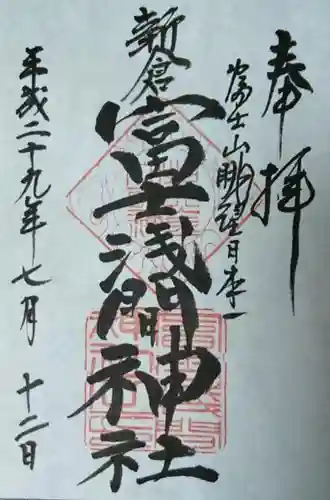 奉拝
富士山眺望日本一
新倉
富士浅間神社
平成二十九年七月十二日